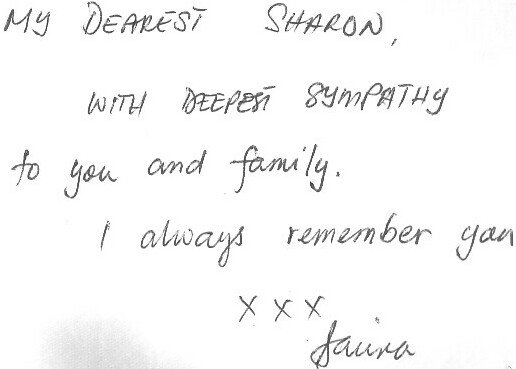 MY DEAREST SHARON,
WITH DEEPEST SYMPATHY
to you and family.
I always remember you
X X X